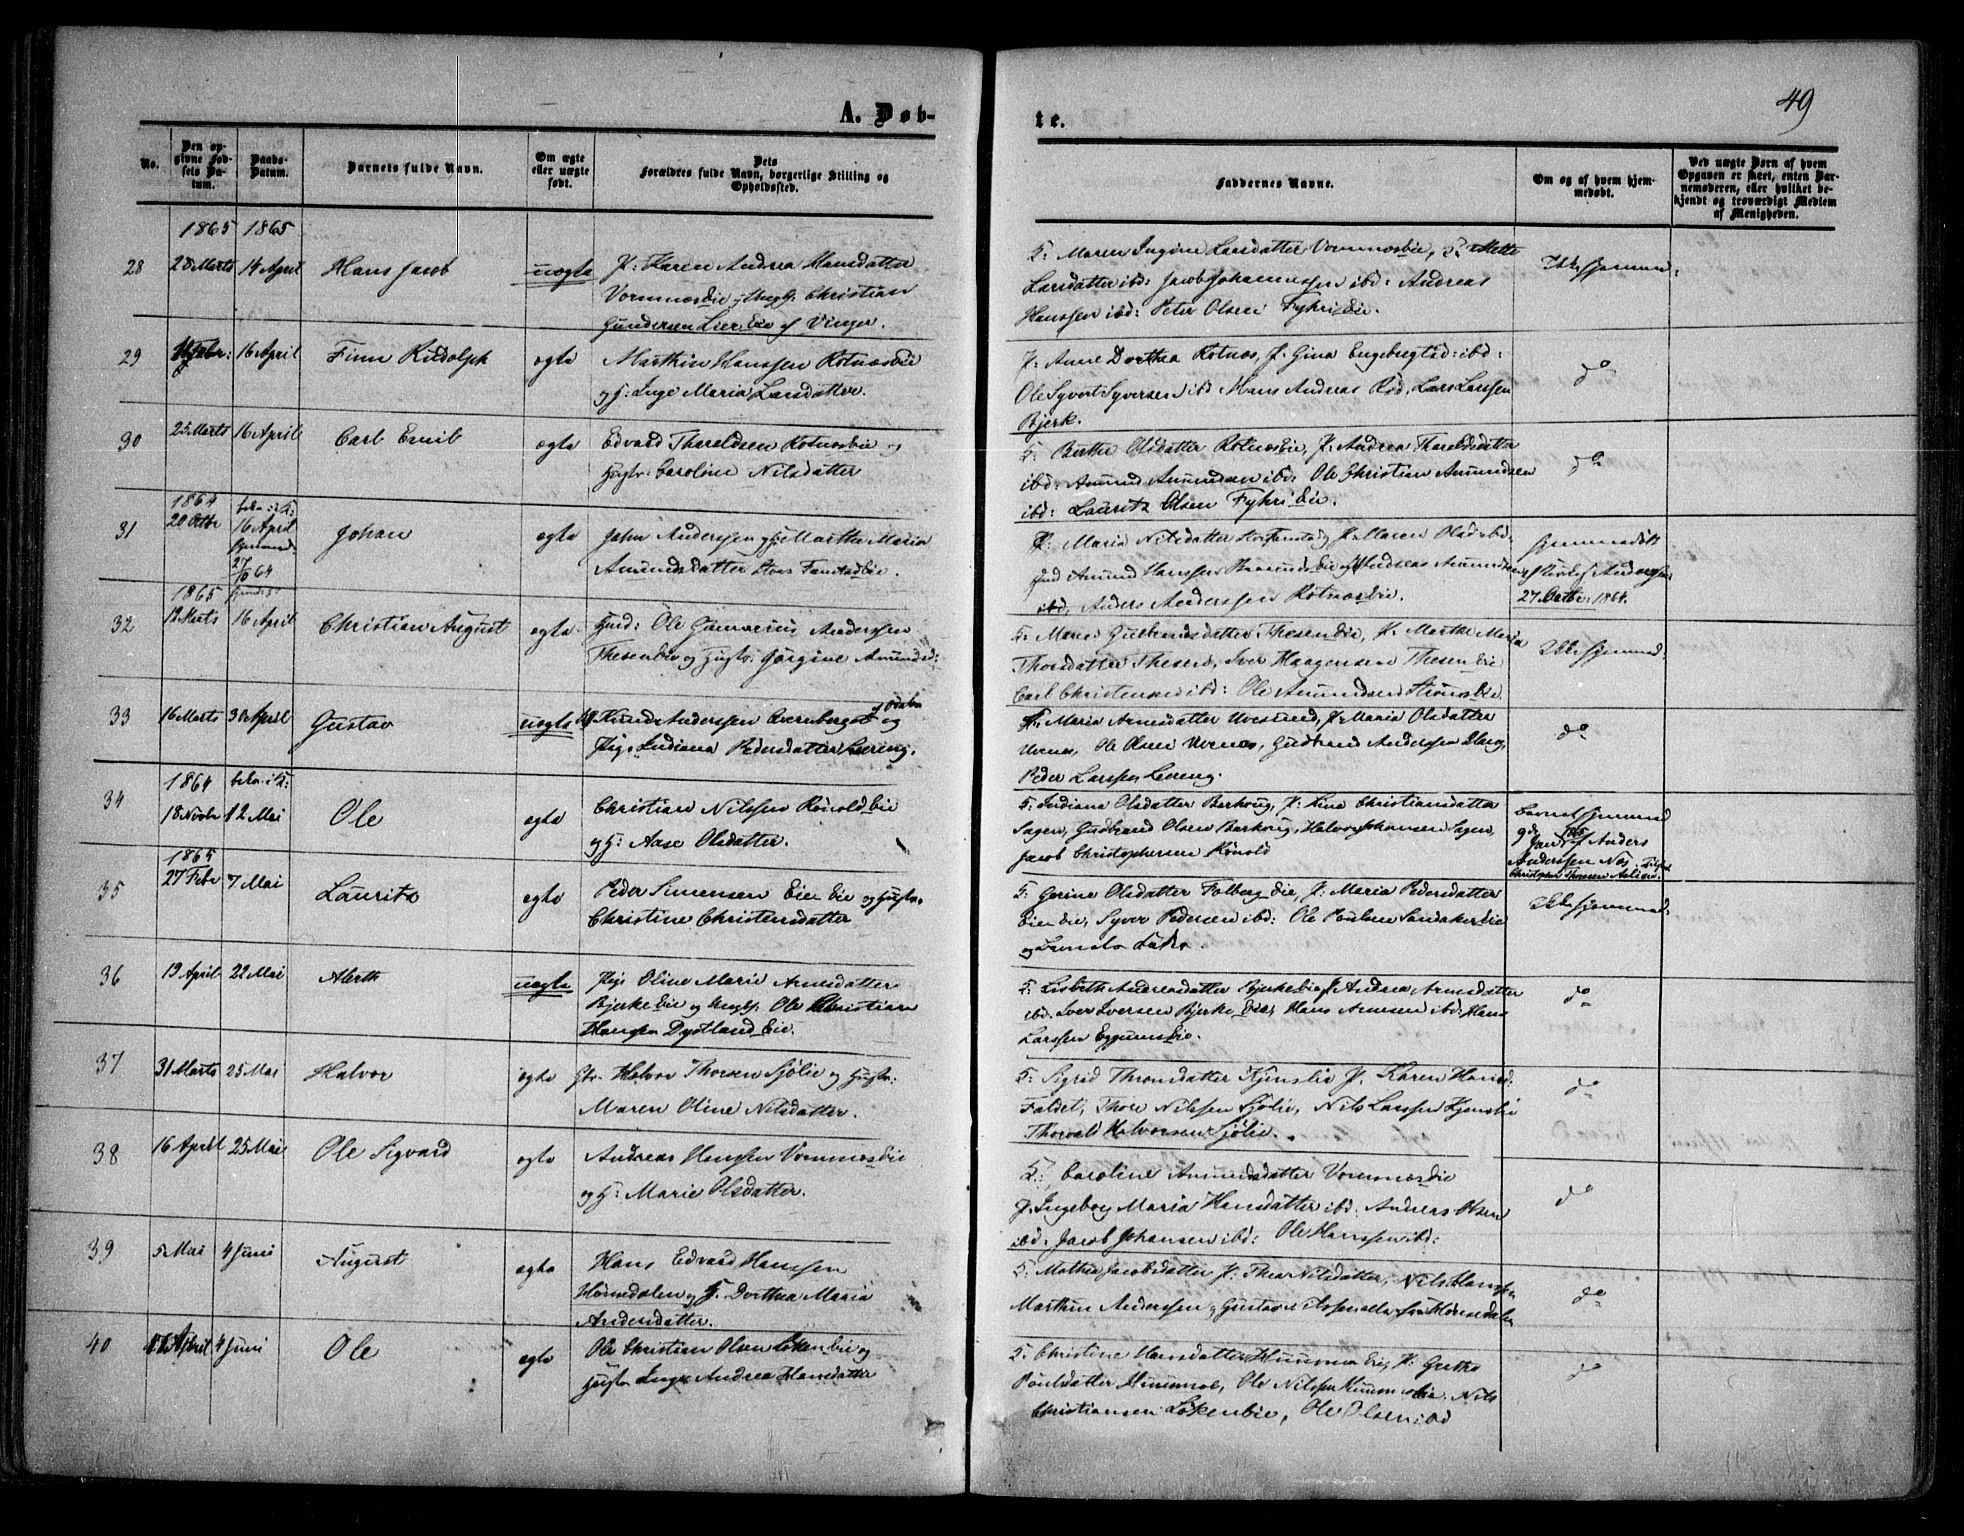 49
A. Døb-
te.
No.
Den op-
givne Fød-
sels Da-
tum.
Daabs-
Datum.
Barnets fulde Navn.
Om ægte
eller uægte
født.
Dets
Forældres fulde Navn, borgerlige Stilling og
Opholdssted.
Faddernes Navne.
Om og af hvem hjem-
medøbt.
Ved uægte Børn af hvem
Opgaven er skeet, enten Bar-
nemoderen, eller hvilket be-
kjendt og troværdigt Medlem
af Menigheden.
1865 1865
28 28 Marts 14 April Hans Jacob uægte P: Karen Andrea Hansdatter
Vormnæseie og Ungk: Christian
Gundersen Lier Eie af Vinger.
H: Maren Ingine Larsdatter Vormnæseie, Mette
Larsdatter ibd: Jacob Johannessen ibd: Andreas
Hanssen ibd: Peter Olsen Fyhri Eie.
Ikke hjemmed:
29 16 April Finn Rudolph ægte Marthin Hanssen Rotnæseie
og H: Inge Maria Larsdatter.
P: Anne Dorthea Rotnæs, P: Gina Engebrigtsd: ibd:
Ole Syvert Syversen ibd Hans Andreas Lars Larssen
Bjerk.
do
30 25 Marts 16 April Carl Emil ægte Edvard Thoreldsen Rotnæseie og
Hustr: Caroline Nilsdatter
H: Berthe Olsdatter Rotnæseie, P: Andrea Thoreldsdatter
ibd: Amund Amundsen ibd: Ole Christian Amundsen
ibd: Lauritz Olsen Fyhri Eie.
do
31 1864
20 Octbr 16 April
27/10 64 Johan ægte John Anderssen og H: Marthe Maria
Amundsdatter Stors Famstad Eie.
Maria Nilsdatter P: Maren Olsd: ibd:
Amund Hanssen Andreas Amundsen
ibd, Anders Anderssen Rotnæseie.
hjemmedøbt
27 Octbr: 1864.
32 1865
12 Marts 16 April Christian August ægte Ole Gunnerius Anderssen
Thesen Eie og Hustr: Jørgine Amundsd:
H: Maren Gulbrandsdatter Thesen Eie, P: Marthe Maria
Thorsdatter Thesen, Iver Haagensen Thesen Eie
Carl Christensen ibd: Ole Amundsen
Ikke hjemmed:
33 16 Marts 30 April Gustav uægte Anderssen af Odalen og
Pige Indiana Pedersdatter Leereng.
Maria Arnesdatter P: Maria Olsdatter
Ole Olsen Gudbrand Anderssen
Peder Larssen Leereng.
do
34 1864
18 Novbr 12 Mai Ole ægte Christian Nilssen Rønold Eie
og H: Aase Olsdatter.
H: Indiana Olsdatter Berhoug, P: Lina Christiansdatter
Sagen, Gudbrand Olsen Berhoug, Halvor Johansen Sagen,
Jacob Christophersen Rønold
Barnet hjemmed
1865 af Anders
Anderssen Næs
35 1865
27 Febr 7. Mai Lauritz ægte Peder Simensen Eier Eie og Hustr.
Christine Christensdatter
H: Gorine Olsdatter Folberg Eie, P: Maria Pedersdatter
Eier Eie, Syver Pedersen ibd: Ole Poulsen Sandaker Eie
Ikke hjemmed:
36 19 April 22 Mai Alerth uægte Pige Oline Marie Arnesdatter
Bjerke Eie og Ungk: Ole Christian
Hanssen Dystland Eie.
H: Lisbeth Andreasdatter Bjerke Eie, P: Andrea Arnesdatter
ibd. Iver Iversen Bjerke Eie, Hans Arnesen ibd: Hans
Larssen Eggums Eie.
do
37 31 Marts 25 Mai Halvor ægte Halvor Thorsen Sjølie og Hustr:
Maren Oline Nilsdatter.
H: Sigrid Thronsdatter Kjenslie P: Karen Hansd.
Faldet, Thore Nilssen Sjølie, Nils Larssen Kjenslie
Thorvald Halvorsen Sjølie.
do
38 16 April 25 Mai Ole Sigvard ægte Andreas Hanssen Vormnæseie
og H: Marie Olsdatter.
H: Caroline Amundsdatter Vormnæseie
P. Ingebor Maria Hansdatter ibd. Anders Olsen
ibd. Jacob Johansen ibd: Ole Hanssen ibd:
do
39 5. Mai 4 Juni August ægte Hans Edvard Hanssen
Hornsdalen og H. Dorthea Maria
Andersdatter.
H: Mathea Jacobsdatter P. Thea Nilsdatter, Nils Hanssen
Marthin Anderssen, Gustav alle fra Hornsdalen
do
40 April 4 Juni Ole ægte Ole Christian Olsen Løken Eie og
Hustr. Inger Andrea Hansdatter
H: Christine Hansdatter P. Grethe
Poulsdatter Ole Nilssen Nils
Christiansen Løken Eie, Ole Olsen ibd
do